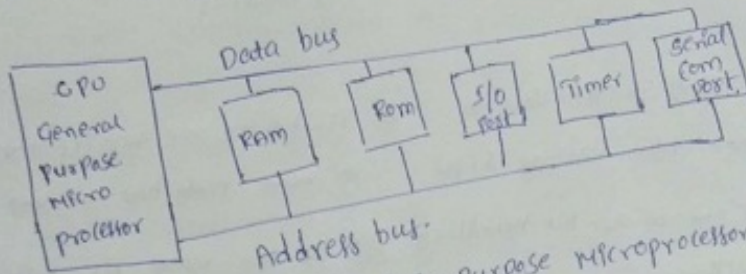 Data bus
CPU
General
purpose
Micro
processor
RAM
Rom
I/O
port
Timer
Serial
Com
port
Address bus.
purpose Microprocessor